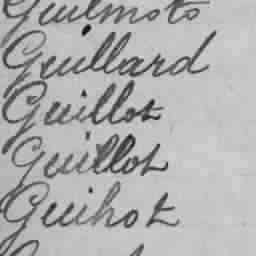 Guilmoto
Guillard
Guillot
Guillot
Guihot